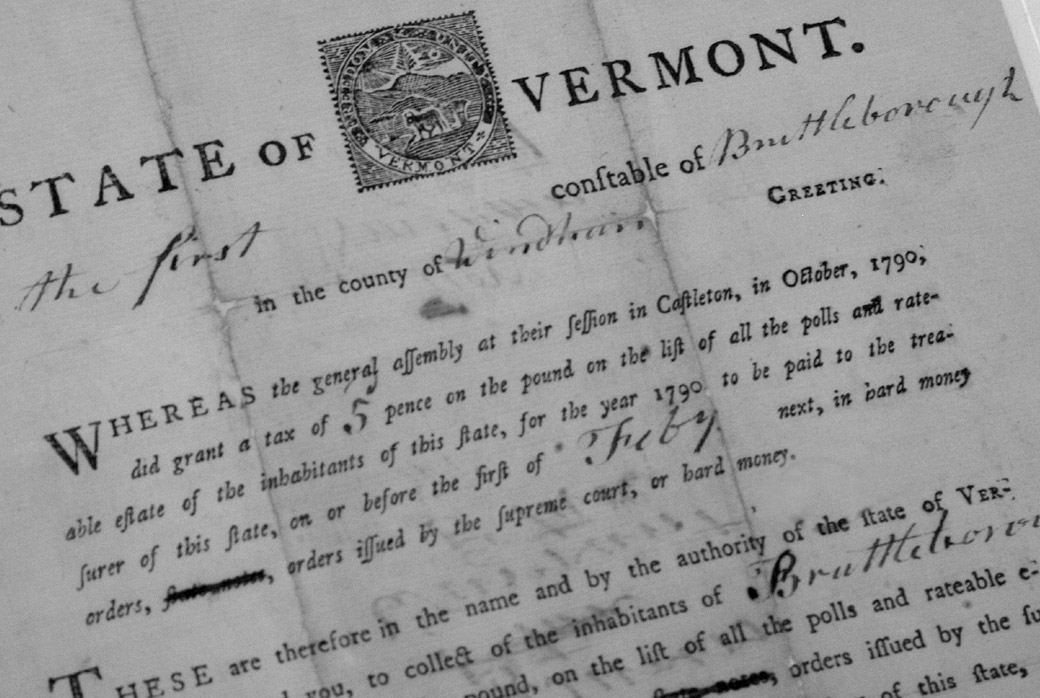 STATE OF VERMONT.
VERMONT
the first conſtable of Brattleborough
in the county of Windham GREETING:
WHEREAS the general aſſembly at their ſeſſion in Caſtleton, in October, 1790,
did grant a tax of 5 pence on the pound on the liſt of all the polls and rate-
able eſtate of the inhabitants of this ſtate, for the year 1790 to be paid to the trea-
ſurer of this ſtate, on or before the firſt of Feby next, in hard money
orders, ſtate notes, orders iſſued by the ſupreme court, or hard money.
THESE are therefore in the name and by the authority of the ſtate of VER-
you, to collect of the inhabitants of Brattleboro
pound, on the liſt of all the polls and rateable e-
ſtate notes, orders iſſued by the ſu
of this ſtate,